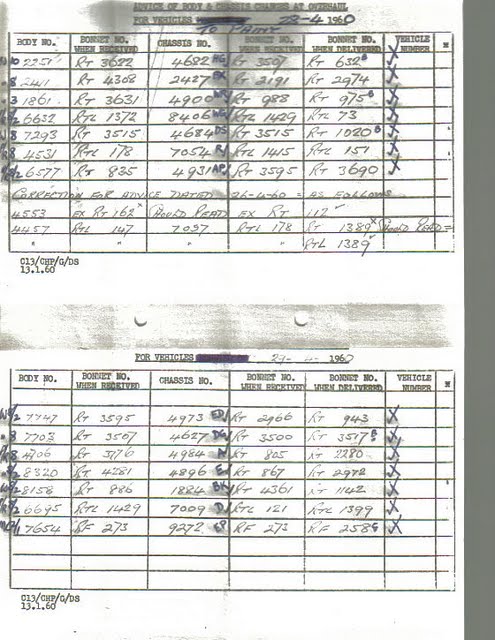 ADVICE OF BODY & CHASSIS CHANGES AT OVERHAUL
FOR VEHICLES 28-4 1960
TO PAINT
BODY NO. BONNET NO. WHEN RECEIVED CHASSIS NO. BONNET NO. WHEN RECEIVED BONNET NO. WHEN DELIVERED VEHICLE NUMBER
10 2251 RT 3622 4682 HG RT 3507 RT 632 B X
8 2411 RT 4308 2427 RT 2191 RT 2974 X
3 1861 RT 3631 4900 RT 988 RT 975 B X
6632 RTL 1372 8406 RTL 1429 RTL 73 X
8 7293 RT 3515 4684 DS RT 3515 RT 1020 B X
8 4531 RTL 178 7054 RTL 1415 RTL 151 X
2 6577 RT 835 4931 AP RT 3595 RT 3690 X
CORRECTION FOR ADVICE DATED 26-4-60 = AS FOLLOWS
4553 EX RT 162 X SHOULD READ EX RT 112 ✓
4457 RTL 147 7037 RTL 178 RT 1389 X SHOULD READ =
" " " " RTL 1389 ✓
C13/CHP/G/DS
13.1.60
FOR VEHICLES 29-4- 1960
BODY NO. BONNET NO. WHEN RECEIVED CHASSIS NO. BONNET NO. WHEN RECEIVED BONNET NO. WHEN DELIVERED VEHICLE NUMBER
2 7747 RT 3595 4973 RT 2966 RT 943 X
8 7703 RT 3507 4627 DG RT 3500 RT 3517 B X
8 RT 4984 RT 805 2280 X
2 8320 RT 4281 4896 RT 867 RT 2972 X
2 8158 RT 886 1884 RT 4361 RT 1142 X
2 6695 RTL 1429 7009 RTL 121 RTL 1399 X
7654 RF 273 9272 RF 273 RF 258 X
C13/CHP/G/DS
13.1.60